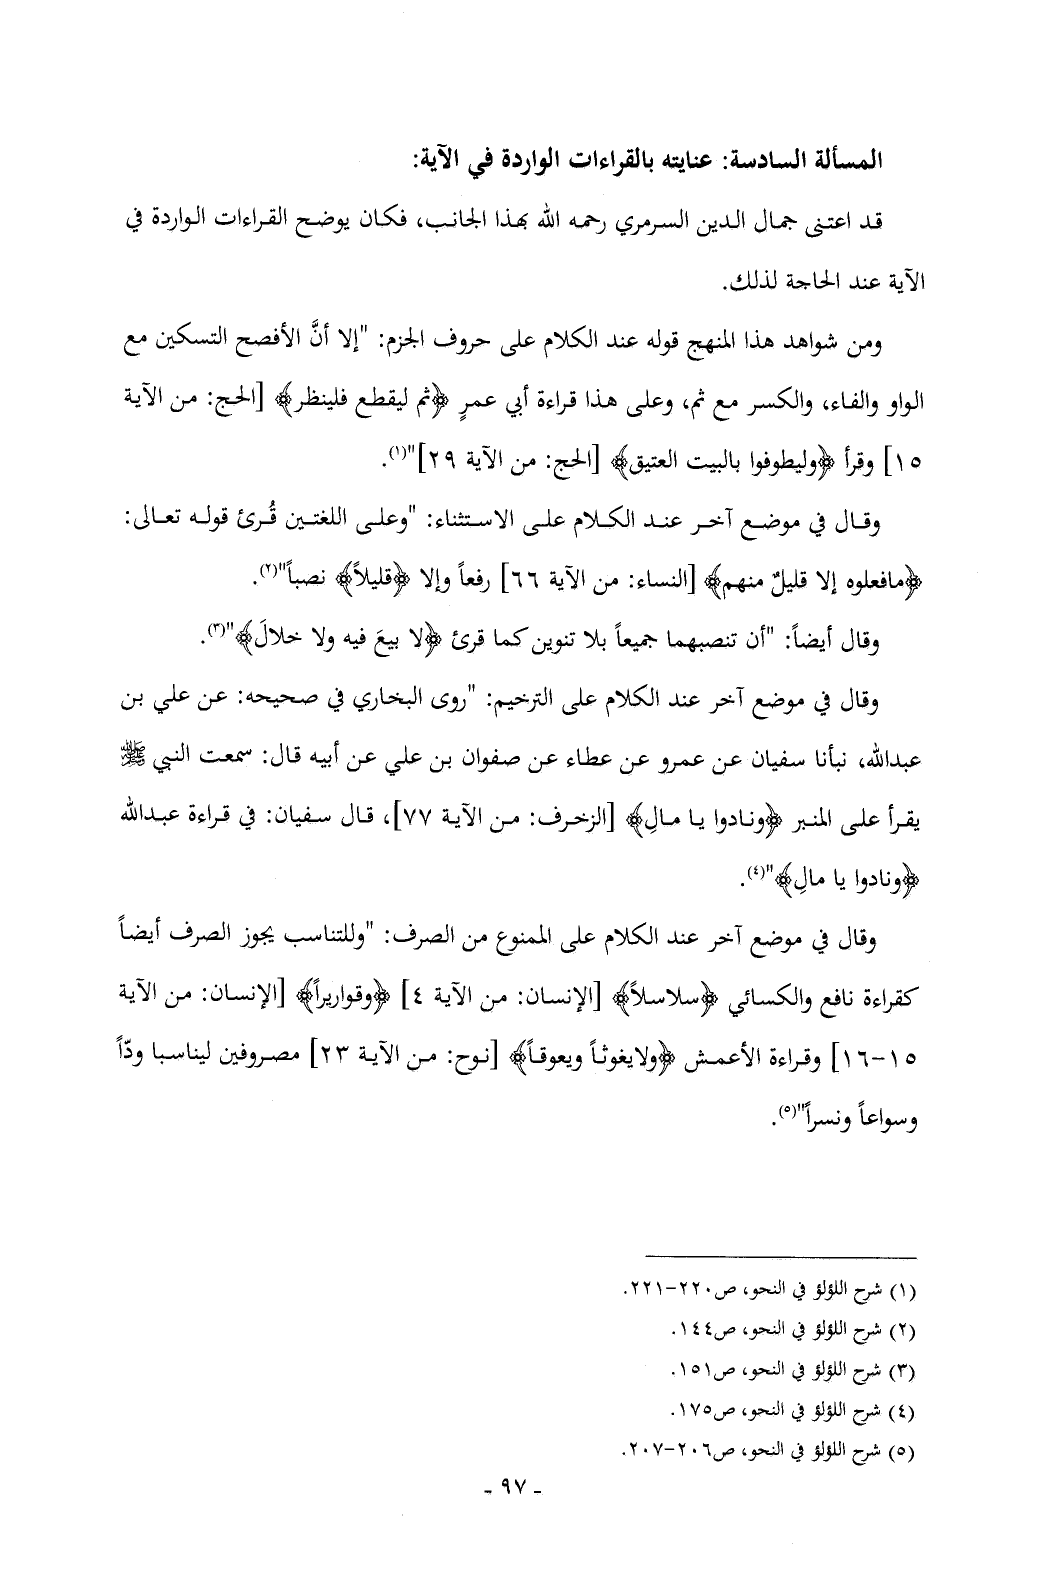 المسألة السادسة: عنايته بالقراءات الواردة في الآية:
قد اعتنى جمال الدين السرمري رحمه الله بهذا الجانب، فكان يوضح القراءات الواردة في
الآية عند الحاجة لذلك.
ومن شواهد هذا المنهج قوله عند الكلام على حروف الجزم: "إلا أنَّ الأفصح التسكين مع
الواو والفاء، والكسر مع ثم، وعلى هذا قراءة أبي عمرٍ ﴿ثم ليقطع فلينظر﴾ [الحج: من الآية
١٥] وقرأ ﴿وليطوفوا بالبيت العتيق﴾ [الحج: من الآية ٢٩]"(١).
وقال في موضع آخر عند الكلام على الاستثناء: "وعلى اللغتين قُرئ قوله تعالى:
﴿مافعلوه إلا قليلٌ منهم﴾ [النساء: من الآية ٦٦] رفعاً وإلا ﴿قليلاً﴾ نصباً"(٢).
وقال أيضاً: "أن تنصبهما جميعاً بلا تنوين كما قرئ ﴿لا بيعَ فيه ولا خلالَ﴾"(٣).
وقال في موضع آخر عند الكلام على الترخيم: "روى البخاري في صحيحه: عن علي بن
عبدالله، نبأنا سفيان عن عمرو عن عطاء عن صفوان بن علي عن أبيه قال: سمعت النبي ﷺ
يقرأ على المنبر ﴿ونادوا يا مالِ﴾ [الزخرف: من الآية ٧٧]، قال سفيان: في قراءة عبدالله
﴿ونادوا يا مالِ﴾"(٤).
وقال في موضع آخر عند الكلام على الممنوع من الصرف: "وللتناسب يجوز الصرف أيضاً
كقراءة نافع والكسائي ﴿سلاسلاً﴾ [الإنسان: من الآية ٤] ﴿وقواريراً﴾ [الإنسان: من الآية
١٥-١٦] وقراءة الأعمش ﴿ولايغوثاً ويعوقاً﴾ [نوح: من الآية ٢٣] مصروفين ليناسبا ودّاً
وسواعاً ونسراً"(٥).
(١) شرح اللؤلؤ في النحو، ص٢٢٠-٢٢١.
(٢) شرح اللؤلؤ في النحو، ص١٤٤.
(٣) شرح اللؤلؤ في النحو، ص١٥١.
(٤) شرح اللؤلؤ في النحو، ص١٧٥.
(٥) شرح اللؤلؤ في النحو، ص٢٠٦-٢٠٧.
- ٩٧ -